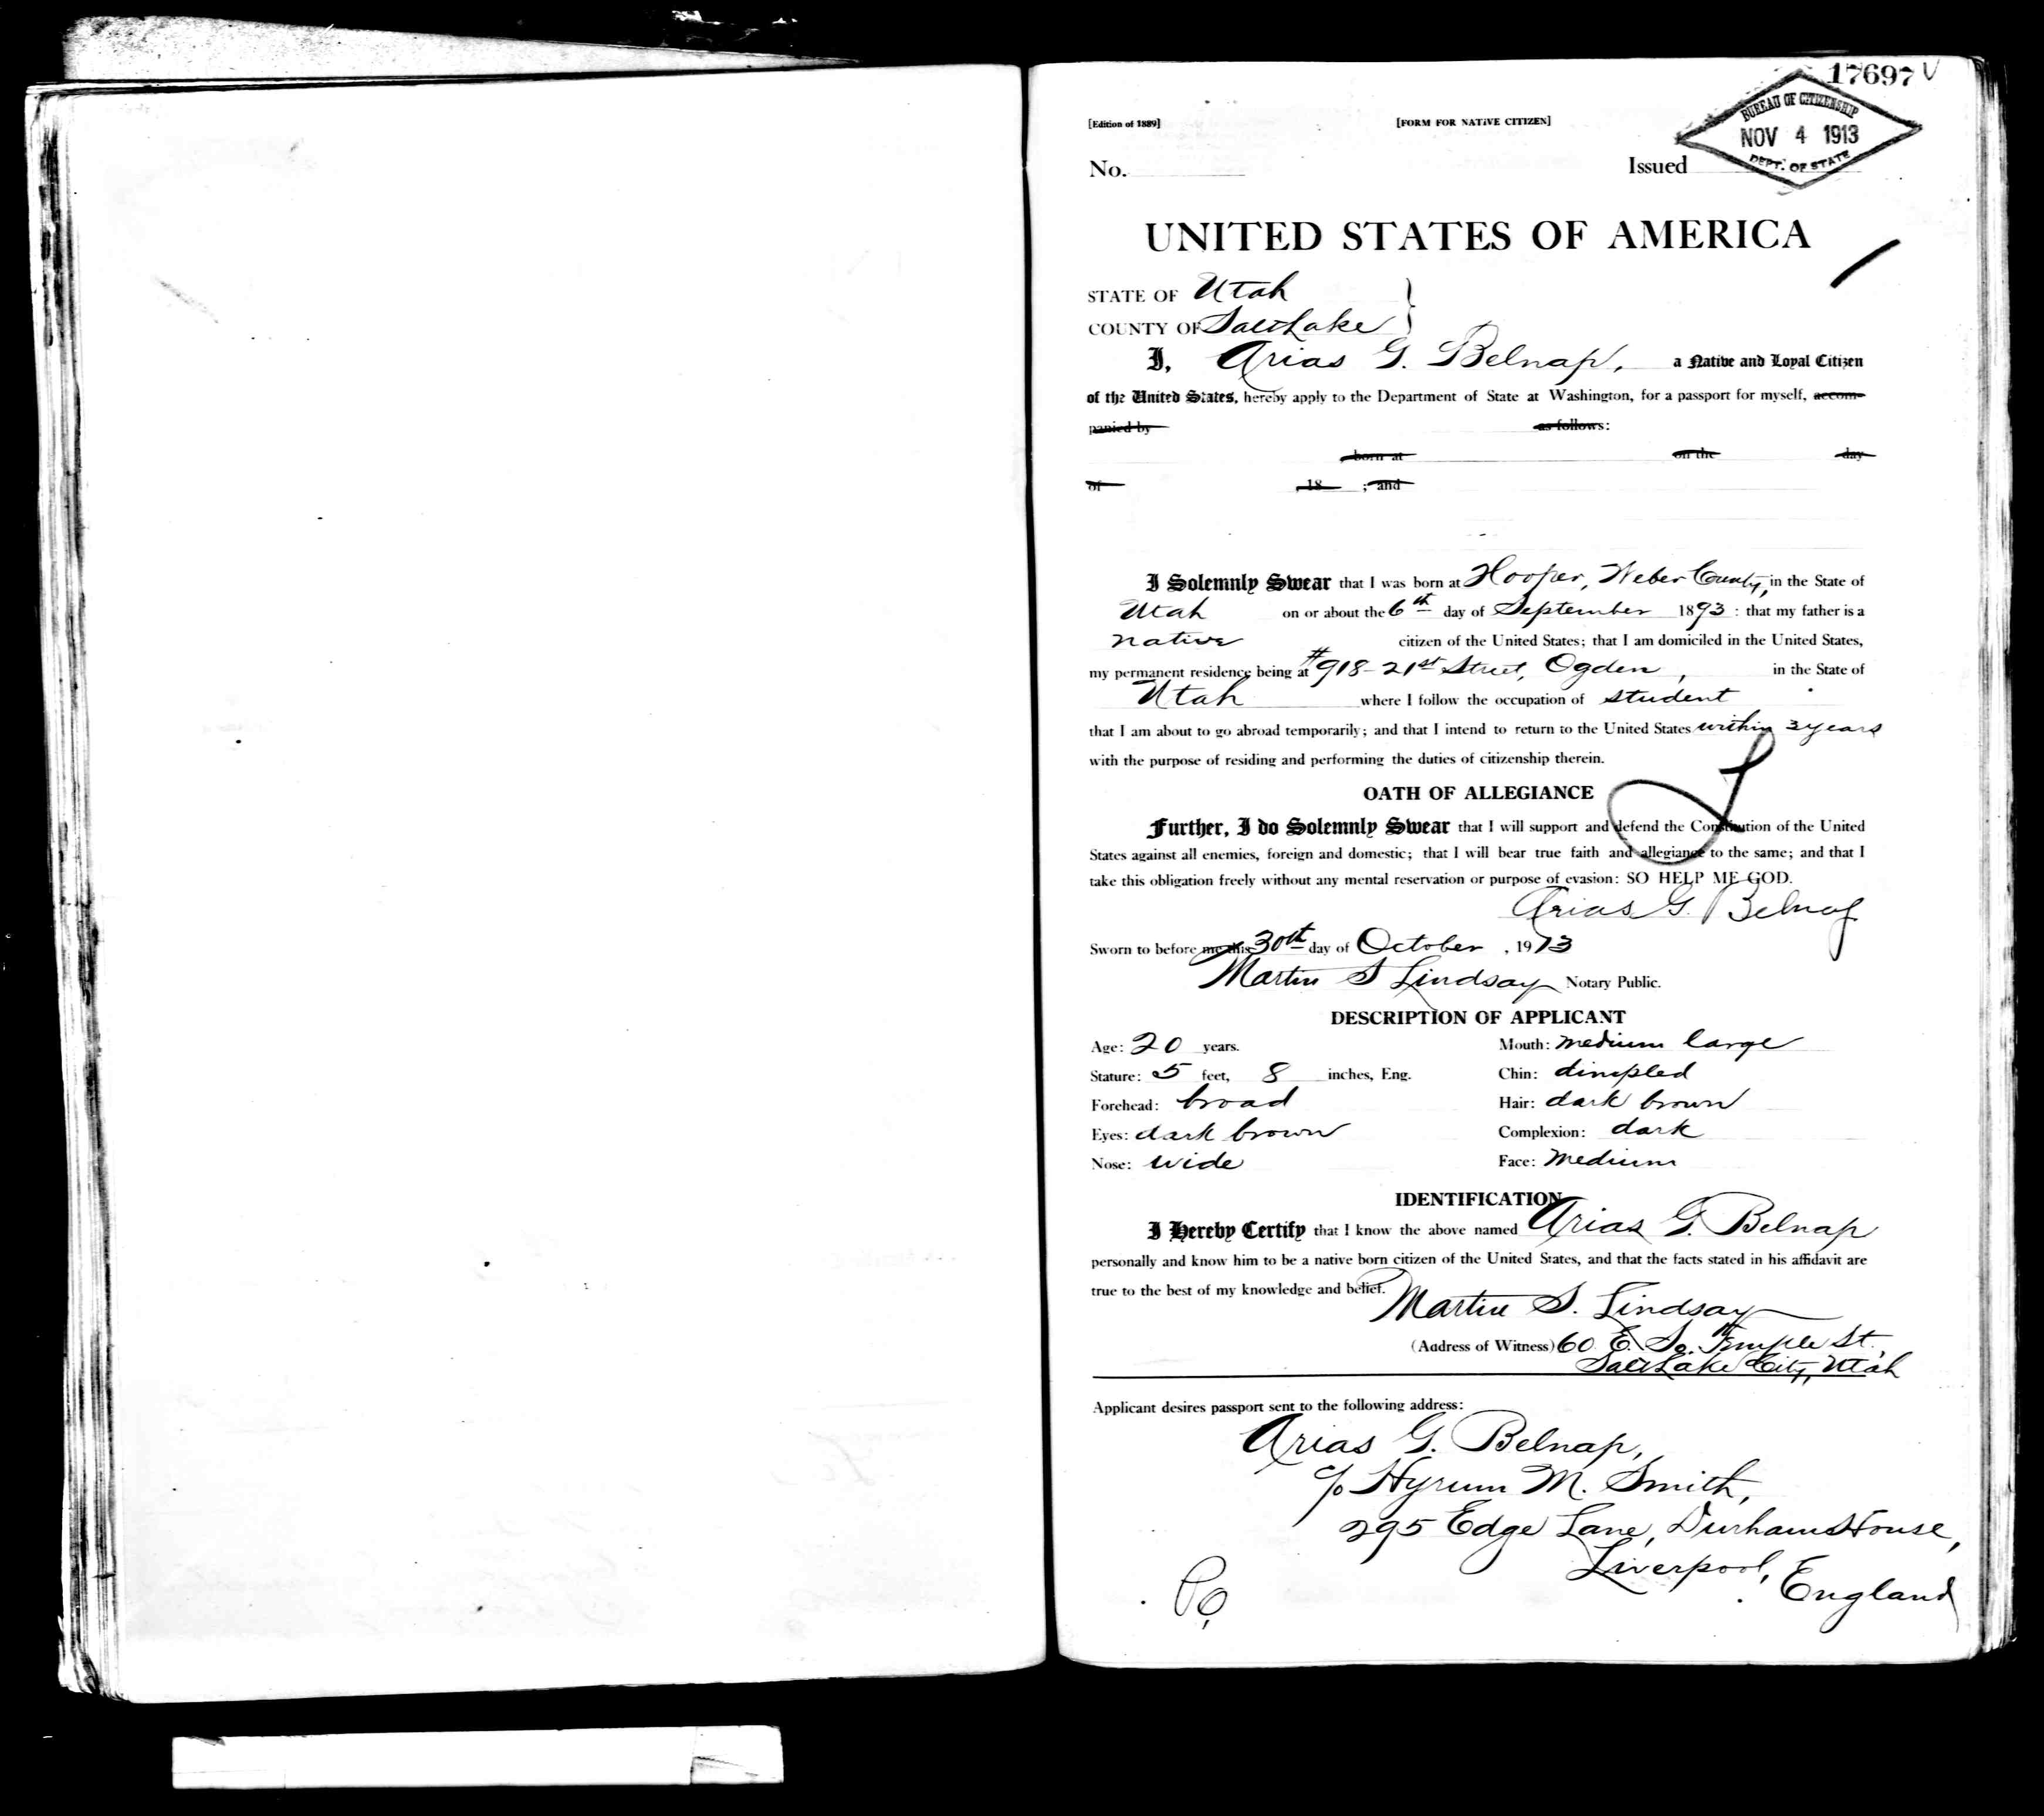 17697
BUREAU OF CITIZENSHIP
NOV 4 1913
DEPT. OF STATE
[Edition of 1889]
[FORM FOR NATIVE CITIZEN]
No.
Issued
UNITED STATES OF AMERICA
STATE OF Utah
COUNTY OF Salt Lake
I, Arias G. Belnap, a Native and Loyal Citizen
of the United States, hereby apply to the Department of State at Washington, for a passport for myself, accom-
panied by as follows:
born at on the day
of 18 ; and
I Solemnly Swear that I was born at Hooper, Weber County, in the State of
Utah on or about the 6th day of September 1893 : that my father is a
native citizen of the United States; that I am domiciled in the United States,
my permanent residence being at #918-21st Street, Ogden, in the State of
Utah where I follow the occupation of student
that I am about to go abroad temporarily; and that I intend to return to the United States within 3 years
with the purpose of residing and performing the duties of citizenship therein.
OATH OF ALLEGIANCE
Further, I do Solemnly Swear that I will support and defend the Constitution of the United
States against all enemies, foreign and domestic; that I will bear true faith and allegiance to the same; and that I
take this obligation freely without any mental reservation or purpose of evasion: SO HELP ME GOD.
Arias G. Belnap
Sworn to before me this 30th day of October, 1913
Martin S Lindsay Notary Public.
DESCRIPTION OF APPLICANT
Age: 20 years. Mouth: medium large
Stature: 5 feet, 8 inches, Eng. Chin: dimpled
Forehead: broad Hair: dark brown
Eyes: dark brown Complexion: dark
Nose: wide Face: medium
IDENTIFICATION
I Hereby Certify that I know the above named Arias G. Belnap
personally and know him to be a native born citizen of the United States, and that the facts stated in his affidavit are
true to the best of my knowledge and belief.
Martin S. Lindsay
(Address of Witness) 60 E. So. Temple St.,
Salt Lake City, Utah
Applicant desires passport sent to the following address:
Arias G. Belnap,
c/o Hyrum M. Smith,
295 Edge Lane, Durham House,
Liverpool,
England